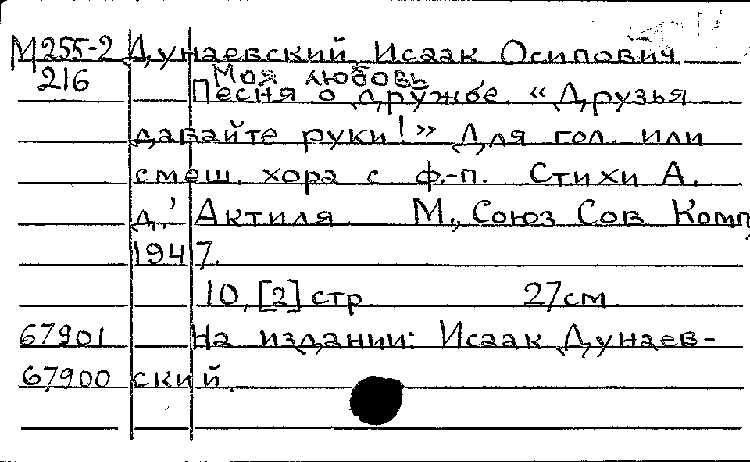 М255-2 Дунаевский, Исаак Осипович
216 Моя любовь.
Песня о дружбе. «Друзья
давайте руки!» Для гол. или
смеш. хора с ф.-п. Стихи А.
Д'Актиля. М., Союз Сов Комп,
1947.
10, [2] стр 27см
67901 На издании: Исаак Дунаев-
67900 ский.